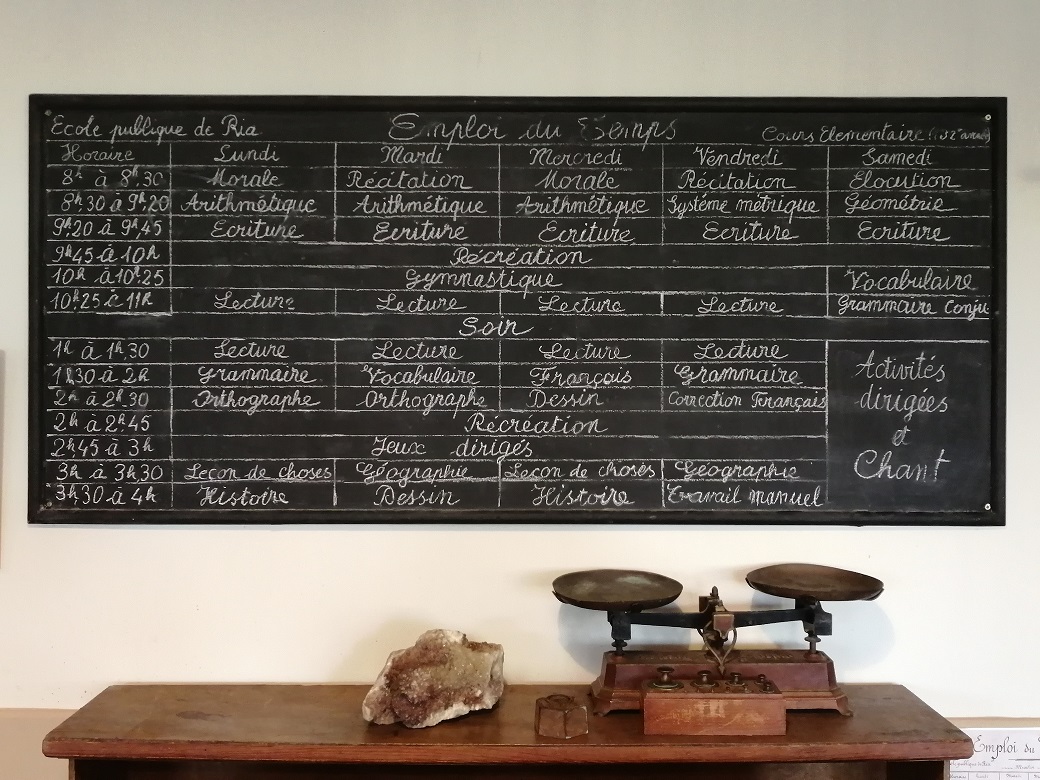 Ecole publique de Ria Emploi du Temps Cours Elementaire
Horaire Lundi Mardi Mercredi Vendredi Samedi
8h à 8h30 Morale Récitation Morale Récitation Elocution
8h30 à 9h20 Arithmétique Arithmétique Arithmétique Système métrique Géométrie
9h20 à 9h45 Ecriture Ecriture Ecriture Ecriture Ecriture
9h45 à 10h Récréation
10h à 10h25 Gymnastique Vocabulaire
10h25 à 11h Lecture Lecture Lecture Lecture Grammaire Conju
Soin
1h à 1h30 Lecture Lecture Lecture Lecture
1h30 à 2h Grammaire Vocabulaire Français Grammaire
2h à 2h30 Orthographe Orthographe Dessin Correction Français
2h à 2h45 Récréation
2h45 à 3h Jeux dirigés
3h à 3h30 Leçon de choses Géographie Leçon de choses Géographie
3h30 à 4h Histoire Dessin Histoire Travail manuel
Activités
dirigées
et
Chant
Emploi du